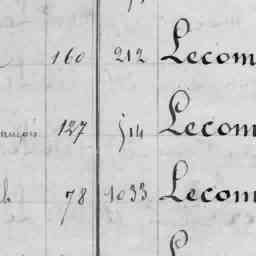 160 212 Lecom
127 514 Lecom
78 1033 Lecom